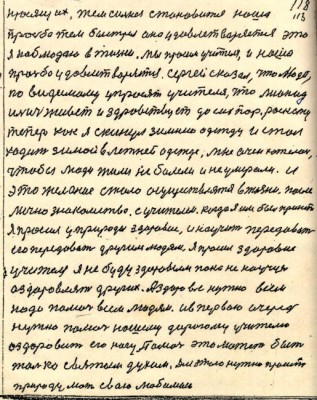 118
113
просящих, тем сильнее становится наша
просьба тем быстрее она удовлетворяется это
я наблюдаю в жизни. Мы просим учителя, и наша
просьба удовлетворяется. Сергей сказал, что Надо,
по видимому упросят учителя, что Леонид
ильич живет и здравствует до сих пор. раскажу
теперь как я скинул зимнию одежду и стал
ходить зимой в летней одежде, мне очень хотелось,
чтобы люди жили не болели и не умерали. и
это желание стало осуществлятся в жизни, после
лично знакомство с учителем. когда я им был принят
Я просил у природы здоровье, и научить передавать
его передавать другим людям, Я просил здоровие
учителю я не буду здоровым пока не научусь
оздоровлять других. А здоровье нужно всем
надо помочь всем людям. и в первою очередь
нужно помочь нашему дорогому учителю
оздоровить его ногу, Помочь это может быть
только святым духом. Для этого нужно просить
природу, мать свою любимою